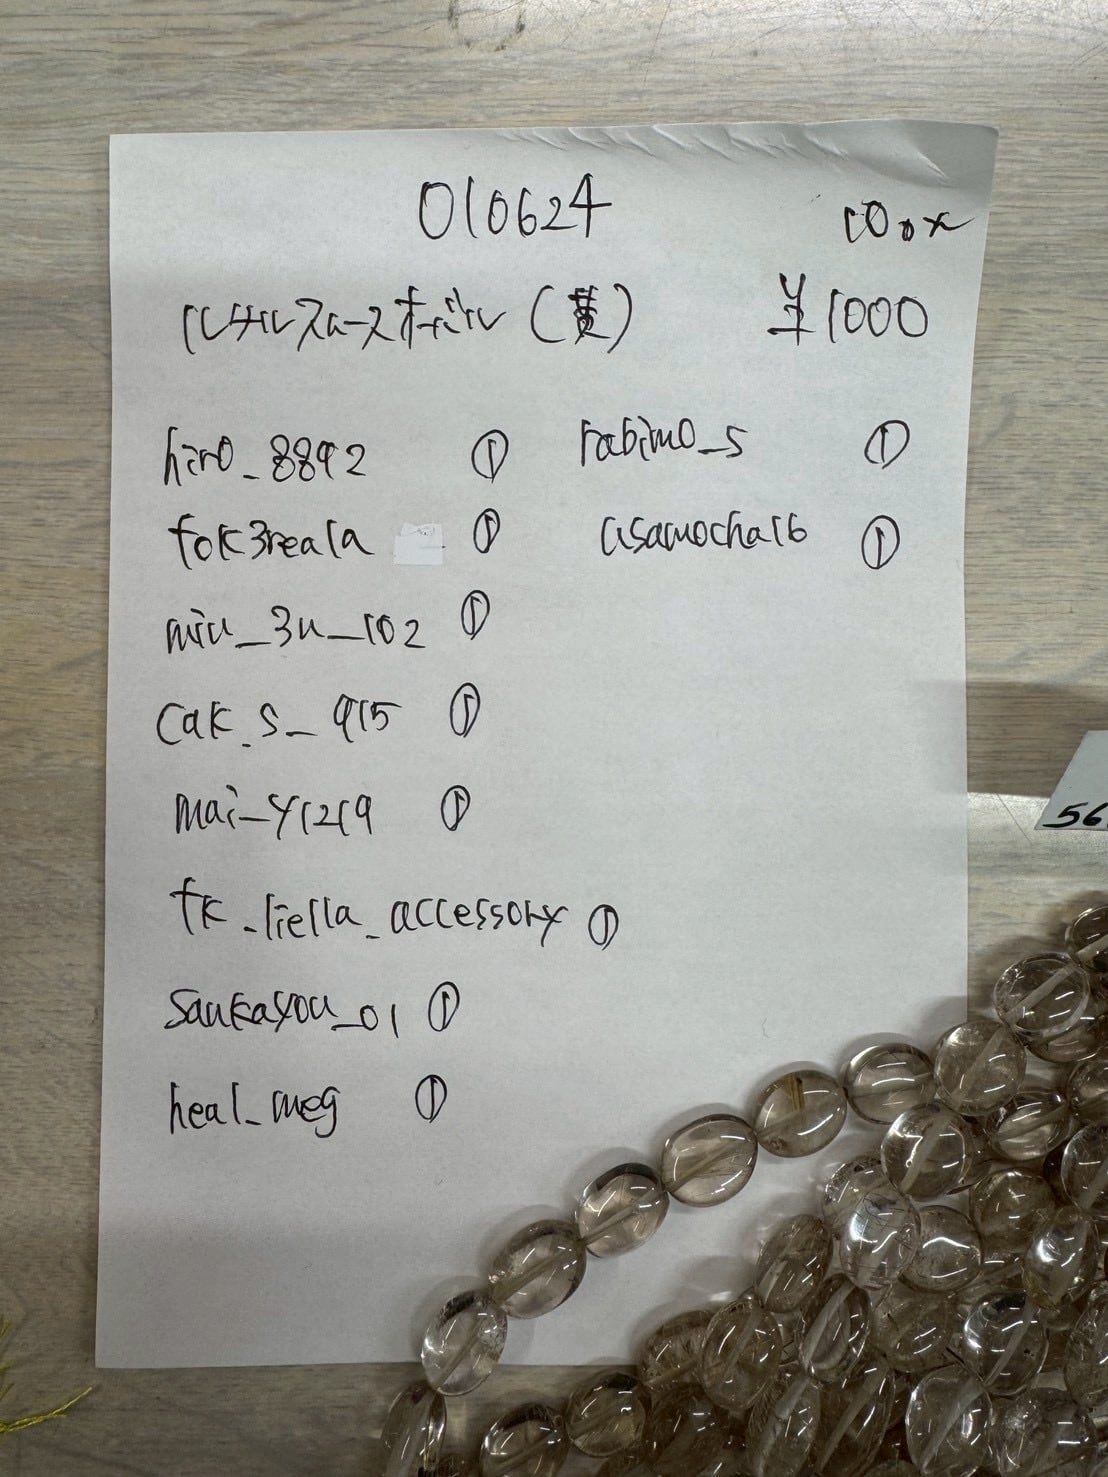 010624
ルチルスムースオーバル(黄) ¥1000
hiro_8892 ①
fok3reala ①
miu_3u_102 ①
cak.s_915 ①
mai_y1219 ①
fk_liella_accessory ①
sankayou_01 ①
heal_meg ①
rabimo_s ①
asamocha16 ①
56